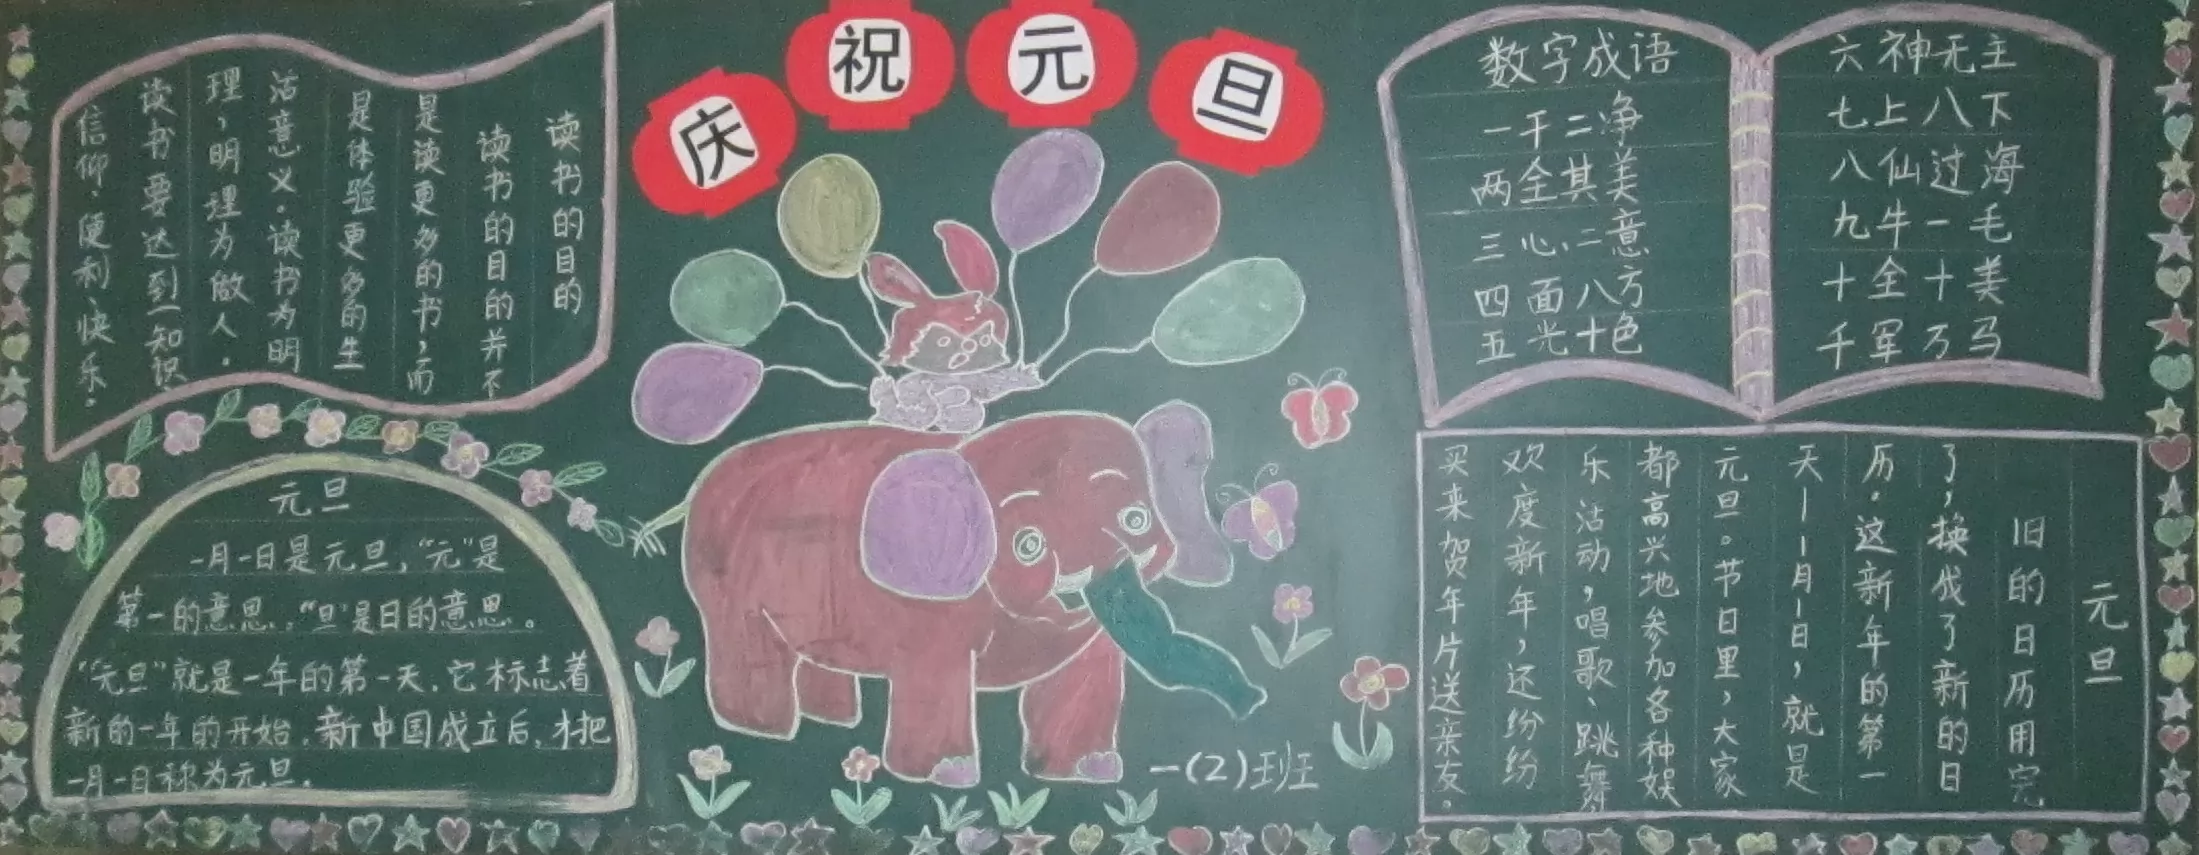 庆祝元旦
读书的目的
读书的目的并不
是读更多的书，而
是体验更多的生
活意义。读书为明
理，明理为做人。
读书要达到一知识
信仰。便利快乐。
元旦
一月一日是元旦，“元”是
第一的意思，“旦”是日的意思。
“元旦”就是一年的第一天，它标志着
新的一年的开始，新中国成立后，才把
一月一日称为元旦。
一(2)班
数字成语
一干二净
两全其美
三心二意
四面八方
五光十色
六神无主
七上八下
八仙过海
九牛一毛
十全十美
千军万马
元旦
旧的日历用完
了，换成了新的日
历。这新年的第一
天——1月1日，就是
元旦。节日里，大家
都高兴地参加各种娱
乐活动，唱歌、跳舞
欢度新年，还纷纷
买来贺年片送亲友。